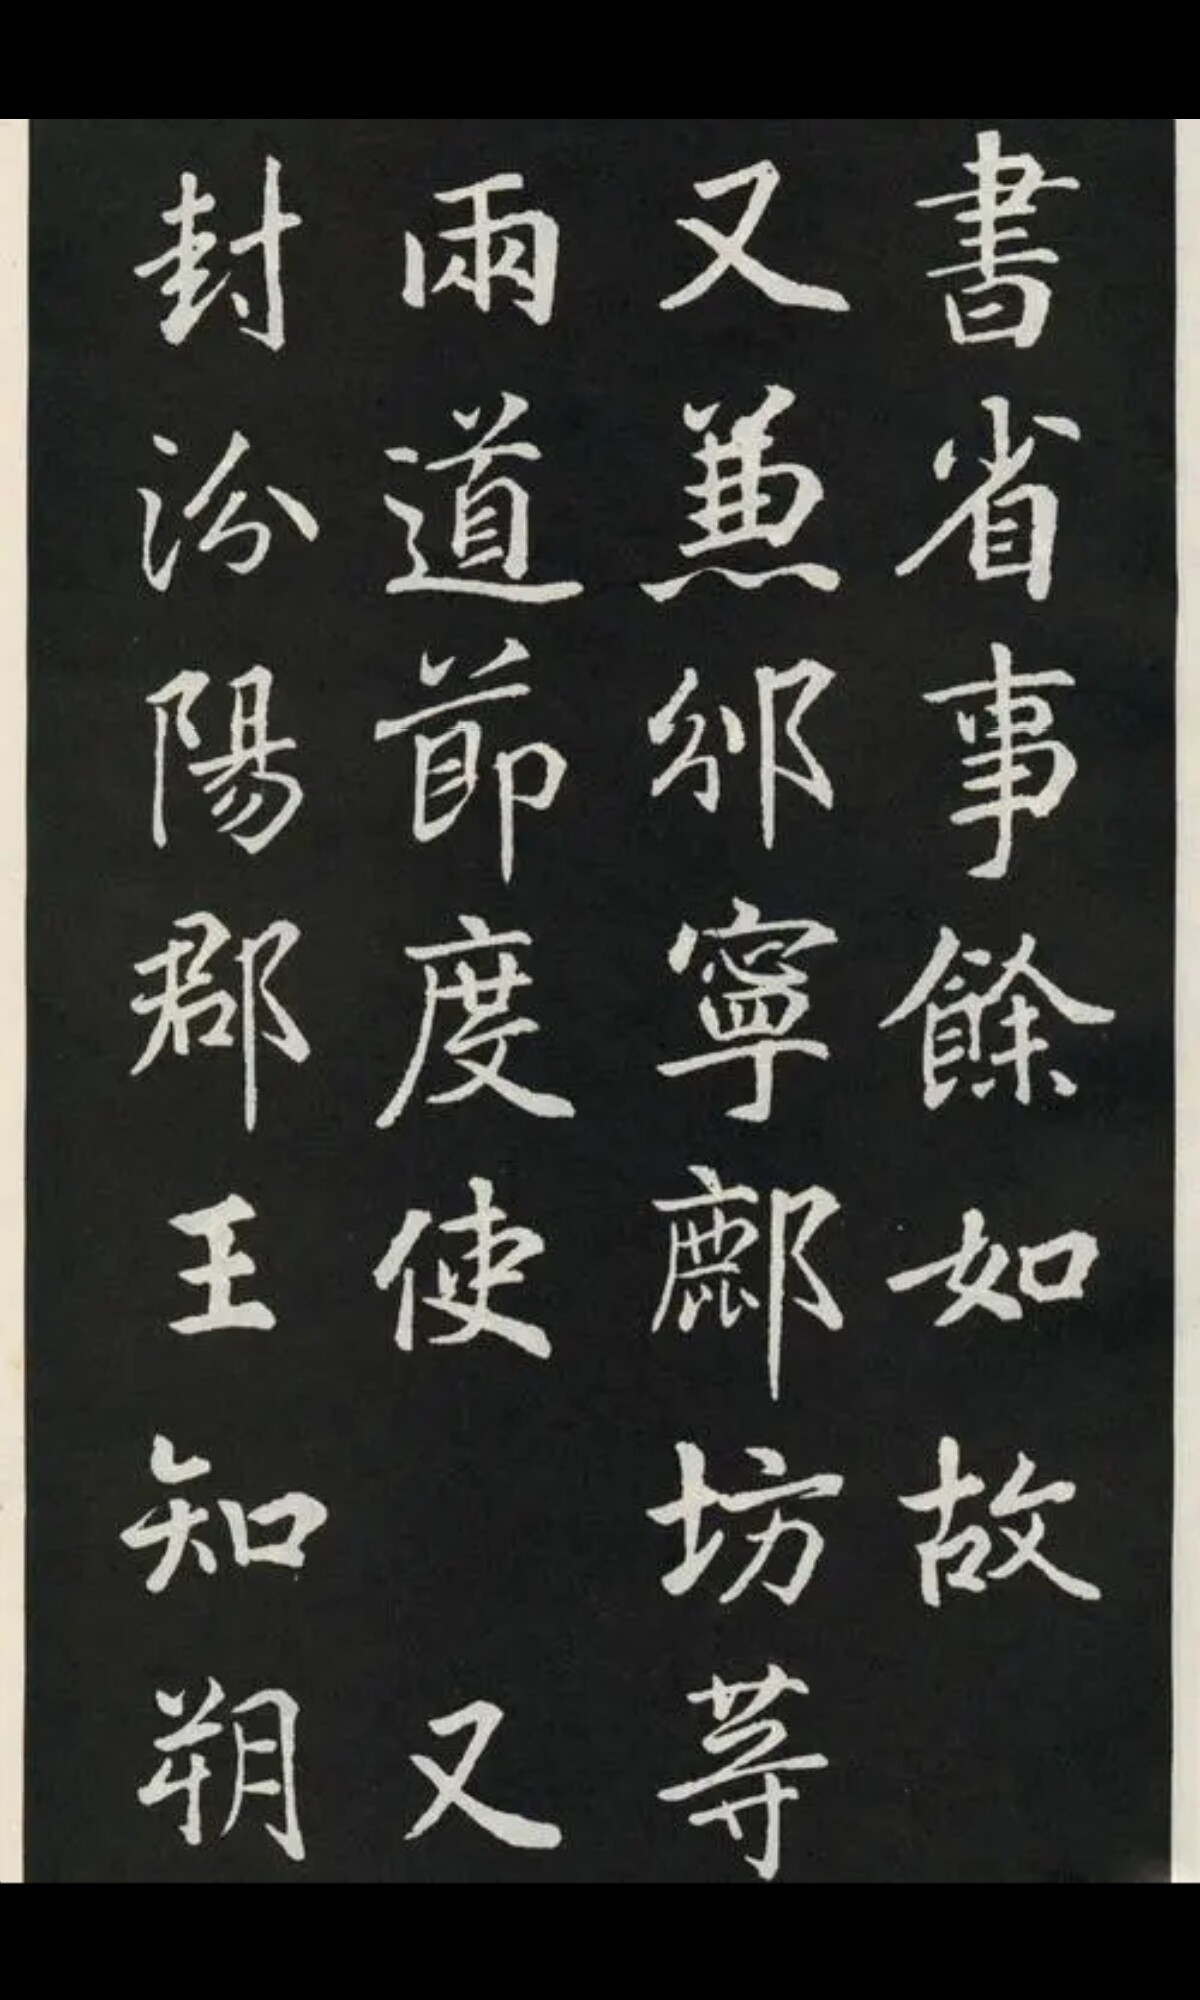 書省事餘如故
又兼邠寧鄜坊等
兩道節度使 又
封汾陽郡王知朔